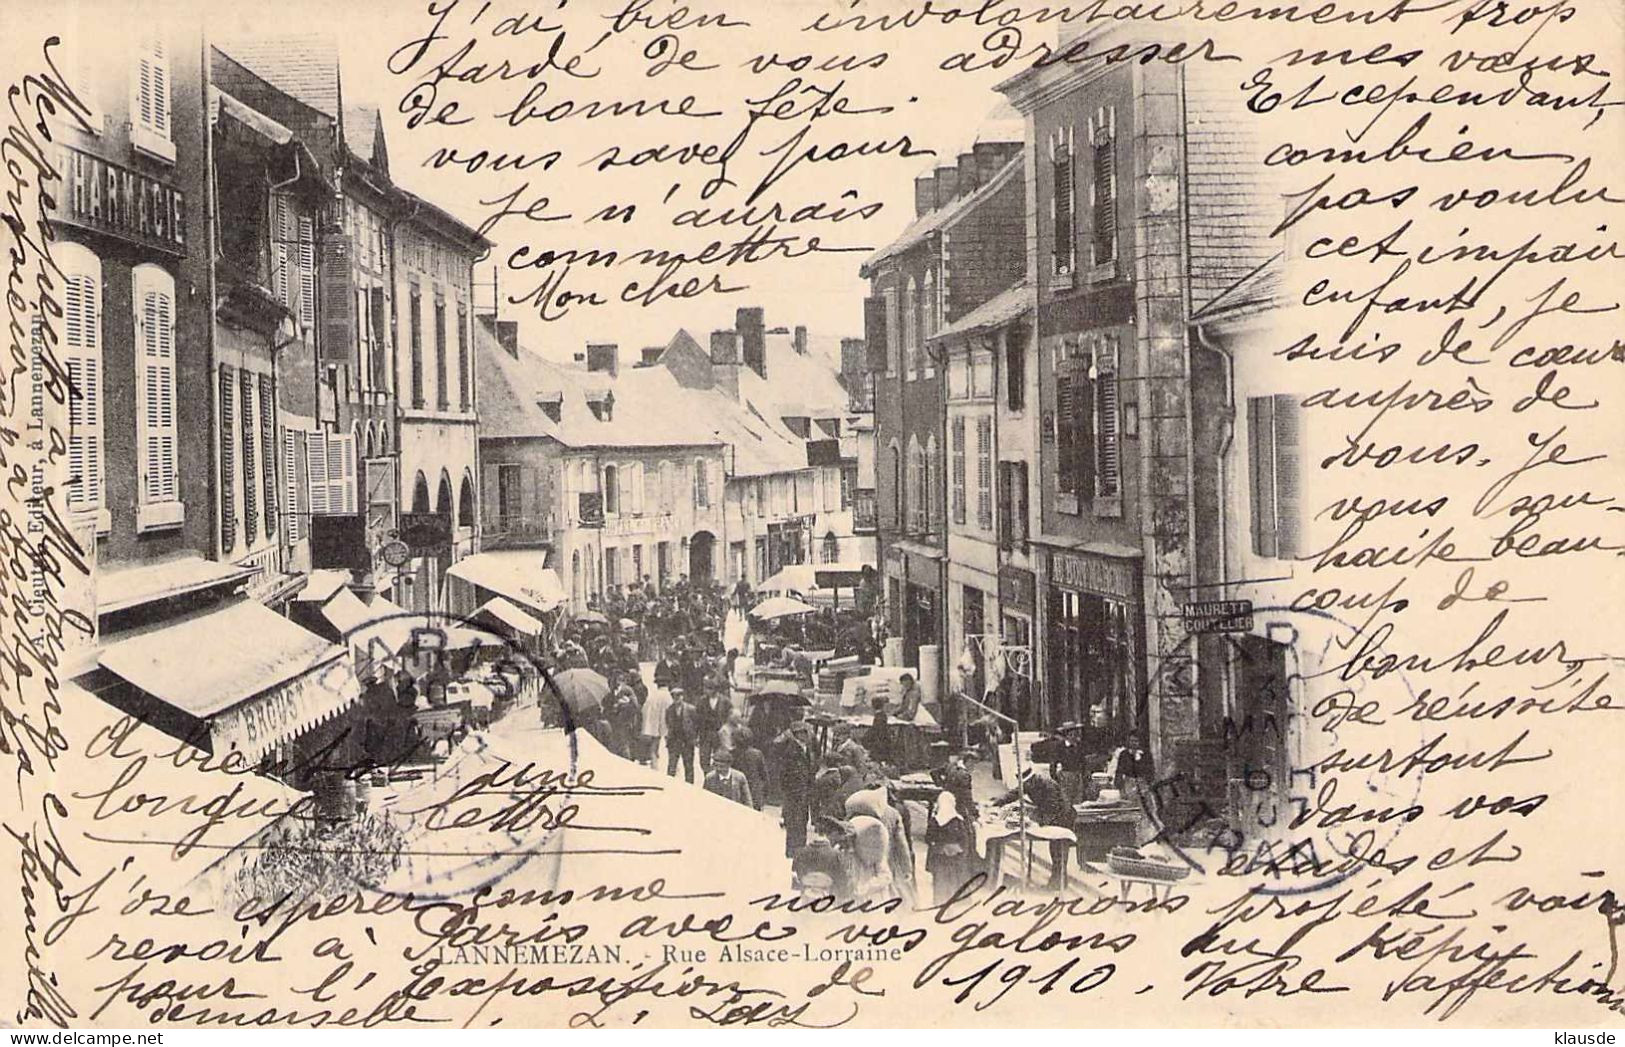 J'ai bien involontairement trop
tardé de vous adresser mes vœux
de bonne fête.
Et cependant,
vous savez pour
combien
je n'aurais
pas voulu
commettre
cet impair
Mon cher
enfant, je
suis de cœur
auprès de
vous. Je
vous sou-
haite beau-
coup de
bonheur,
de réussite
surtout
dans vos
études et
j'ose espérer comme nous l'avions projeté voir
revoir à Paris avec vos galons au Képi
pour l'Exposition de 1910. Votre affectionn
demoiselle. L. Lay
A bientôt une
longue lettre
Mes respects à Madame et
Monsieur
famille
PHARMACIE
BROUST
MAURETT
COUTELIER
PARIS
PARIS
ETRANG
A. Cieutat Editeur, à Lannemezan
LANNEMEZAN. - Rue Alsace-Lorraine
klausde